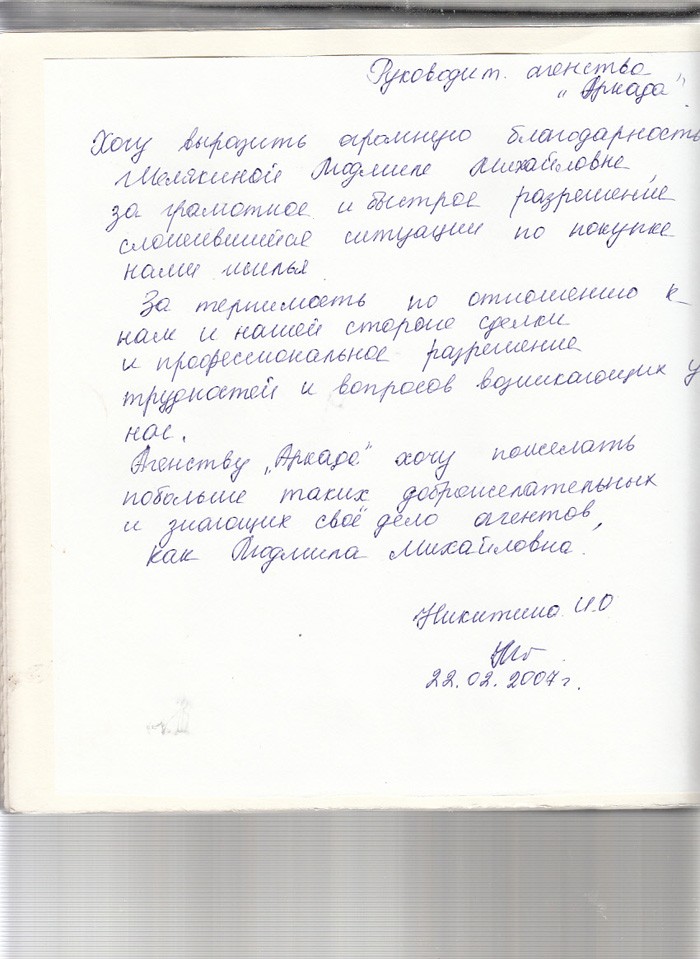 Руководит. агенства
„Аркада"
Хочу выразить огромную благодарность
Шелякиной Людмиле Михайловне,
за грамотное и быстрое разрешение
сложившийся ситуации по покупке
нами жилья
За терпимость по отношению к
нам и нашей стороне сделки
и профессиональное разрешение
трудностей и вопросов возникающих у
нас.
Агенству „Аркада" хочу пожелать
побольше таких доброжелательных
и знающих своё дело агентов,
как Людмила Михайловна.
Никитина И.О
22.02.2007г.